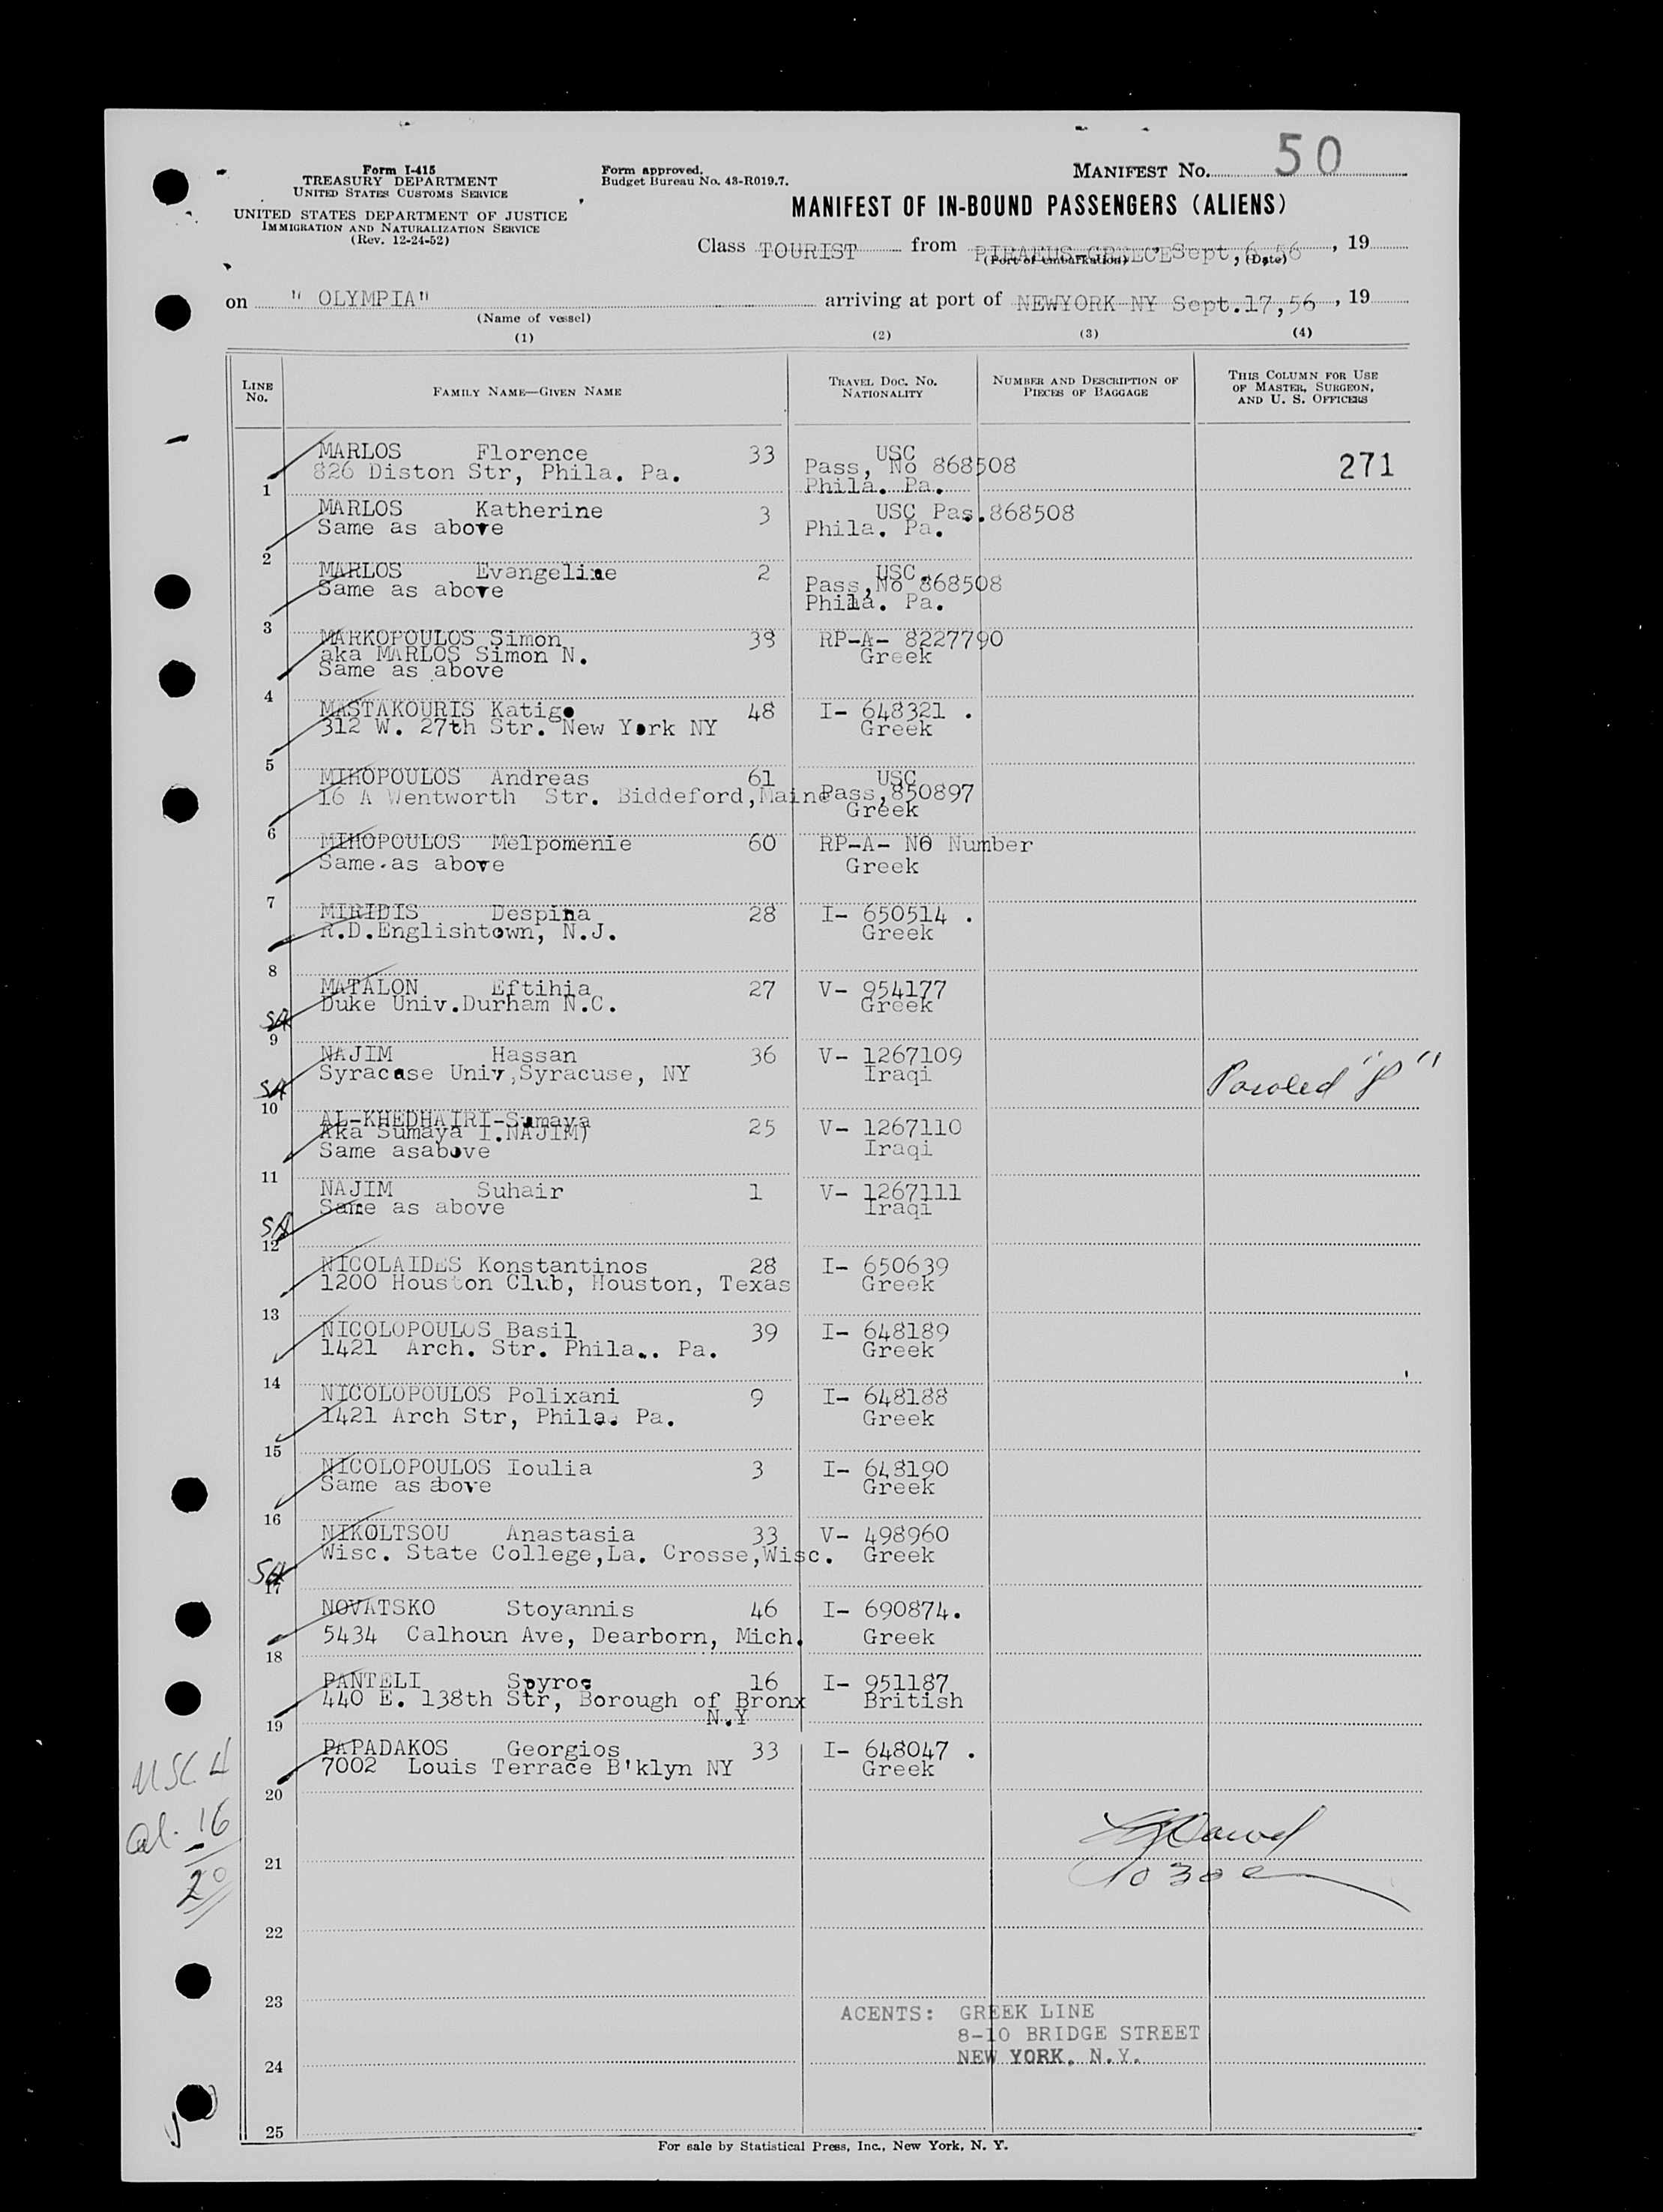 Form I-415
TREASURY DEPARTMENT
UNITED STATES CUSTOMS SERVICE
UNITED STATES DEPARTMENT OF JUSTICE
IMMIGRATION AND NATURALIZATION SERVICE
(Rev. 12-24-52)
Form approved.
Budget Bureau No. 43-R019.7.
MANIFEST No. 50
MANIFEST OF IN-BOUND PASSENGERS (ALIENS)
Class TOURIST from PIRAEUS-GREECE Sept, 6, 56, 19
(Port of embarkation) (Date)
on " OLYMPIA" arriving at port of NEWYORK NY Sept.17,56, 19
(Name of vessel)
(1) (2) (3) (4)
LINE No. FAMILY NAME—GIVEN NAME TRAVEL DOC. NO. NATIONALITY NUMBER AND DESCRIPTION OF PIECES OF BAGGAGE THIS COLUMN FOR USE OF MASTER, SURGEON, AND U. S. OFFICERS
MARLOS Florence 33 USC
826 Diston Str, Phila. Pa. Pass, No 868508 271
1 Phila. Pa.
MARLOS Katherine 3 USC Pas.868508
Same as above Phila. Pa.
2
MARLOS Evangeline 2 USC.
Same as above Pass,No 868508
Phila. Pa.
3
MARKOPOULOS Simon 39 RP-A- 8227790
aka MARLOS Simon N. Greek
Same as above
4
MASTAKOURIS Katigo 48 I- 648321 .
312 W. 27th Str. New York NY Greek
5
MIHOPOULOS Andreas 61 USC
16 A Wentworth Str. Biddeford,Maine Pass,850897
Greek
6
MIHOPOULOS Melpomenie 60 RP-A- NO Number
Same.as above Greek
7
MIRIDIS Despina 28 I- 650514 .
R.D.Englishtown, N.J. Greek
8
MATALON Eftihia 27 V- 954177
Duke Univ.Durham N.C. Greek
SA
9
NAJIM Hassan 36 V- 1267109
Syracase Univ,Syracuse, NY Iraqi Paroled "P"
SA
10
AL-KHEDHAIRI-Sumaya
Aka Sumaya I.NAJIM) 25 V- 1267110
Same asabove Iraqi
11
NAJIM Suhair 1 V- 1267111
Same as above Iraqi
SA
12
NICOLAIDES Konstantinos 28 I- 650639
1200 Houston Club, Houston, Texas Greek
13
NICOLOPOULOS Basil 39 I- 648189
1421 Arch. Str. Phila.. Pa. Greek
14
NICOLOPOULOS Polixani 9 I- 648188
1421 Arch Str, Phila. Pa. Greek
15
NICOLOPOULOS Ioulia 3 I- 648190
Same as above Greek
16
NIKOLTSOU Anastasia 33 V- 498960
Wisc. State College,La. Crosse,Wisc. Greek
SA
17
NOVATSKO Stoyannis 46 I- 690874.
5434 Calhoun Ave, Dearborn, Mich. Greek
18
PANTELI Spyros 16 I- 951187
440 E. 138th Str, Borough of Bronx British
19 N.Y
PAPADAKOS Georgios 33 I- 648047 .
7002 Louis Terrace B'klyn NY Greek
USC 4
20
al. 16
21
20
22
23
ACENTS: GREEK LINE
8-10 BRIDGE STREET
24 NEW YORK. N.Y.
25
For sale by Statistical Press, Inc., New York, N. Y.